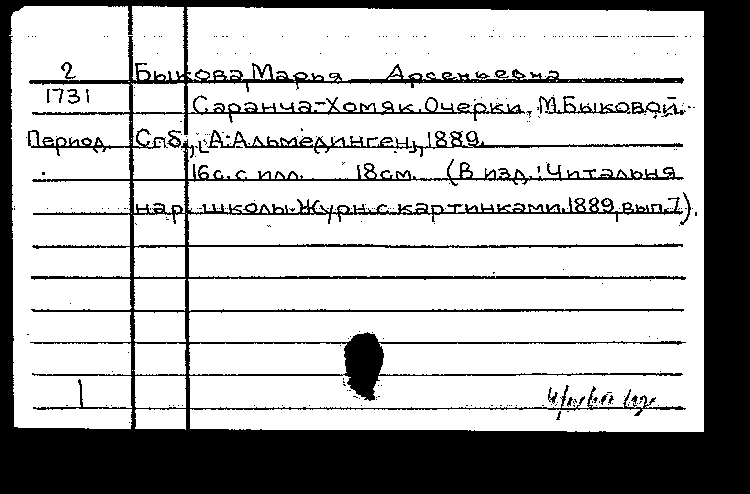 2 Быкова, Мария Арсеньевна
1731 Саранча.-Хомяк. Очерки М. Быковой.
Период. Спб., [А. Альмединген], 1889.
16 с. с илл. 18 см. (В изд.: Читальня
нар. школы. Журн. с картинками. 1889, вып. 7).
1